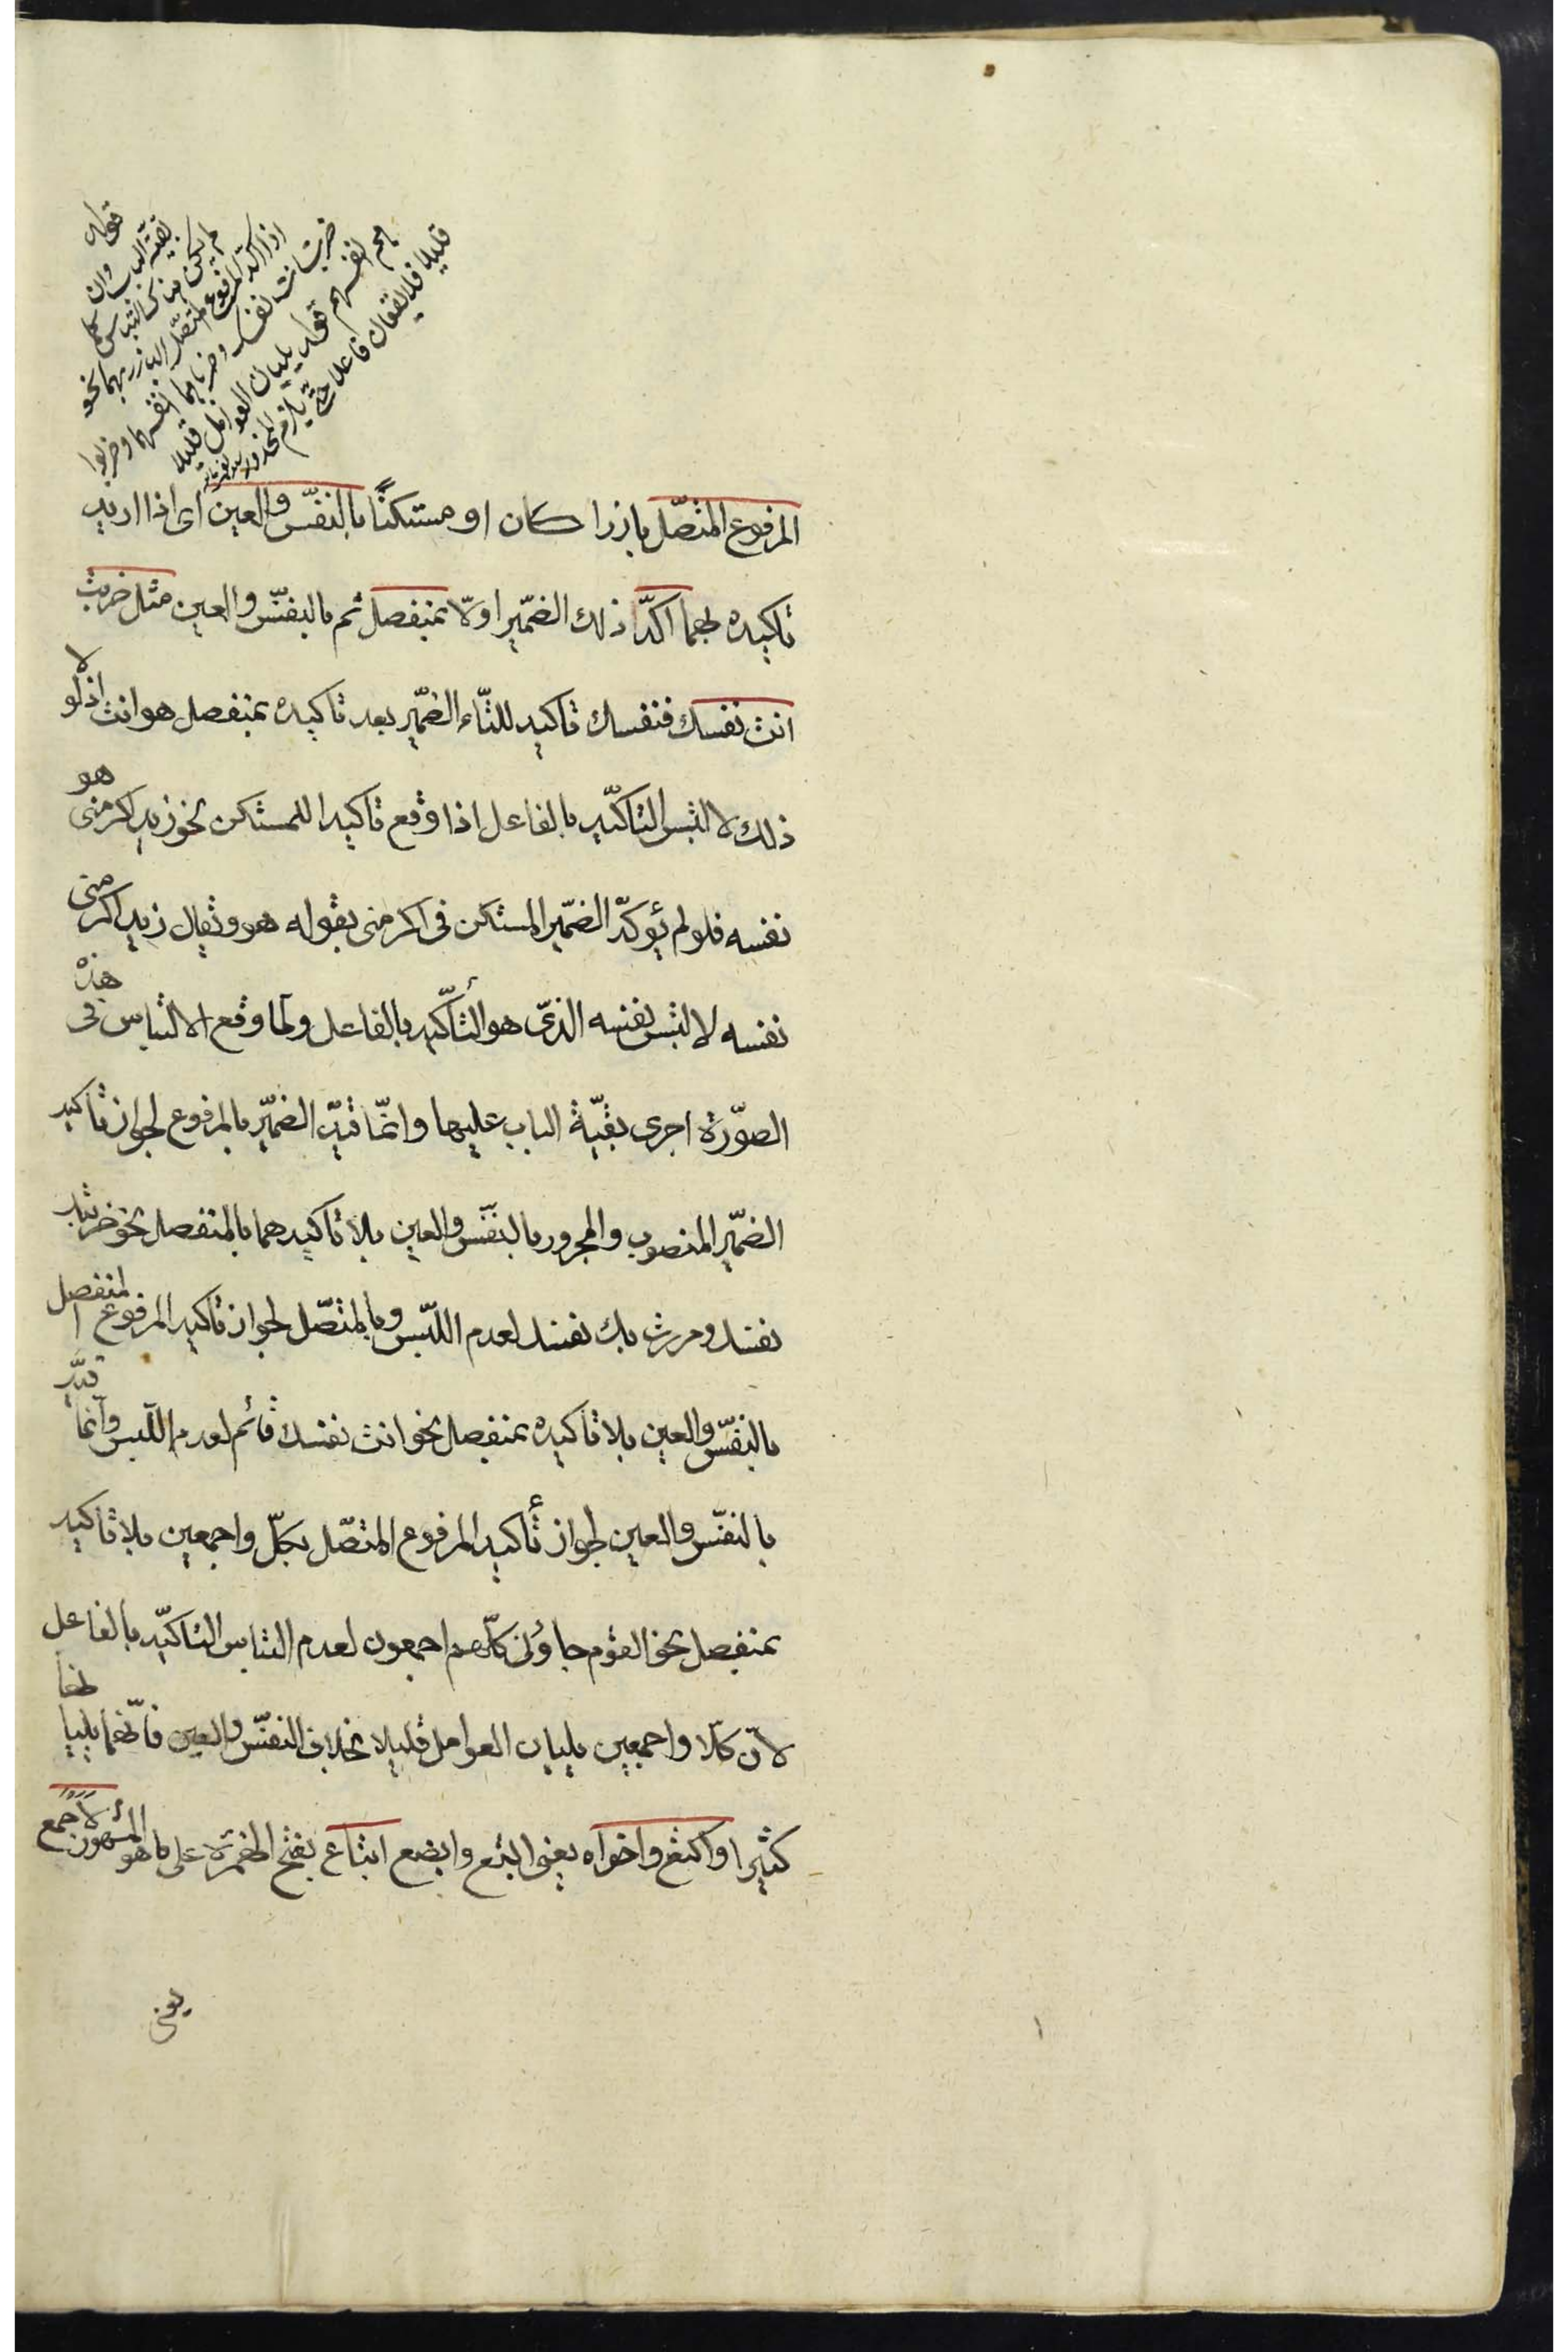 قوله
بقيّة الباب وان
لم يكن فيها التباس كما
اذا اكدّ المرفوع المتصّل البارز بهما نحو
ضربت انت نفسك وضربا هما انفسهما وضربوا
هم انفسهم قوله يليان العوامل قليلا
قليلا فلا يقعان فاعلا حتّى يلزم المحذور
المرفوع المتصّل بارزا كان او مستكنًّا بالنفّس والعين اى اذا اريد
تاكيده بهما اكدّ ذلك الضمّير اولّا بمنفصل ثم بالنفّس والعين مثل ضربت
انت نفسك فنفسك تاكيد للتّاء الضمّير بعد تاكيده بمنفصل هو انت اذ لولا
ذلك لالتبس التاكّيد بالفاعل اذا وقع تاكيدا للمستكن نحو زيد اكرمنى هو
نفسه فلو لم يؤكدّ الضمّير المستكن فى اكرمنى بقوله هو ويقال زيد اكرمنى
نفسه لالتبس نفسه الذىّ هو التأكّيد بالفاعل ولمّا وقع الالتباس فى هذه
الصوّرة اجرى بقيّة الباب عليها وانمّا قيدّ الضميّر بالمرفوع لجواز تاكيد
الضمّير المنصوب والمجرور بالنفّس والعين بلا تاكيدهما بالمنفصل نحو ضربتك
نفسك ومررت بك نفسك لعدم اللبّس وبالمتصّل لجواز تاكيد المرفوع المنفصل
بالنفّس والعين بلا تاكيده بمنفصل نحو انت نفسك قائم لعدم اللّبس وانّما قيدّ
بالنفّس والعين لجواز تأكيد المرفوع المتصّل بكلّ واجمعين بلا تاكيد
بمنفصل نحو القوم جاؤنى كلّهم اجمعون لعدم التباس التاكّيد بالفاعل
لانّ كلّا واجمعين يليان العوامل قليلا بخلاف النفّس والعين فانّهما يليانها
كثيرا واكتع واخواه يعنى ابتع وابصع اتباع بفتح الهمزة على ما هو المشهور لاجمع
يعنى